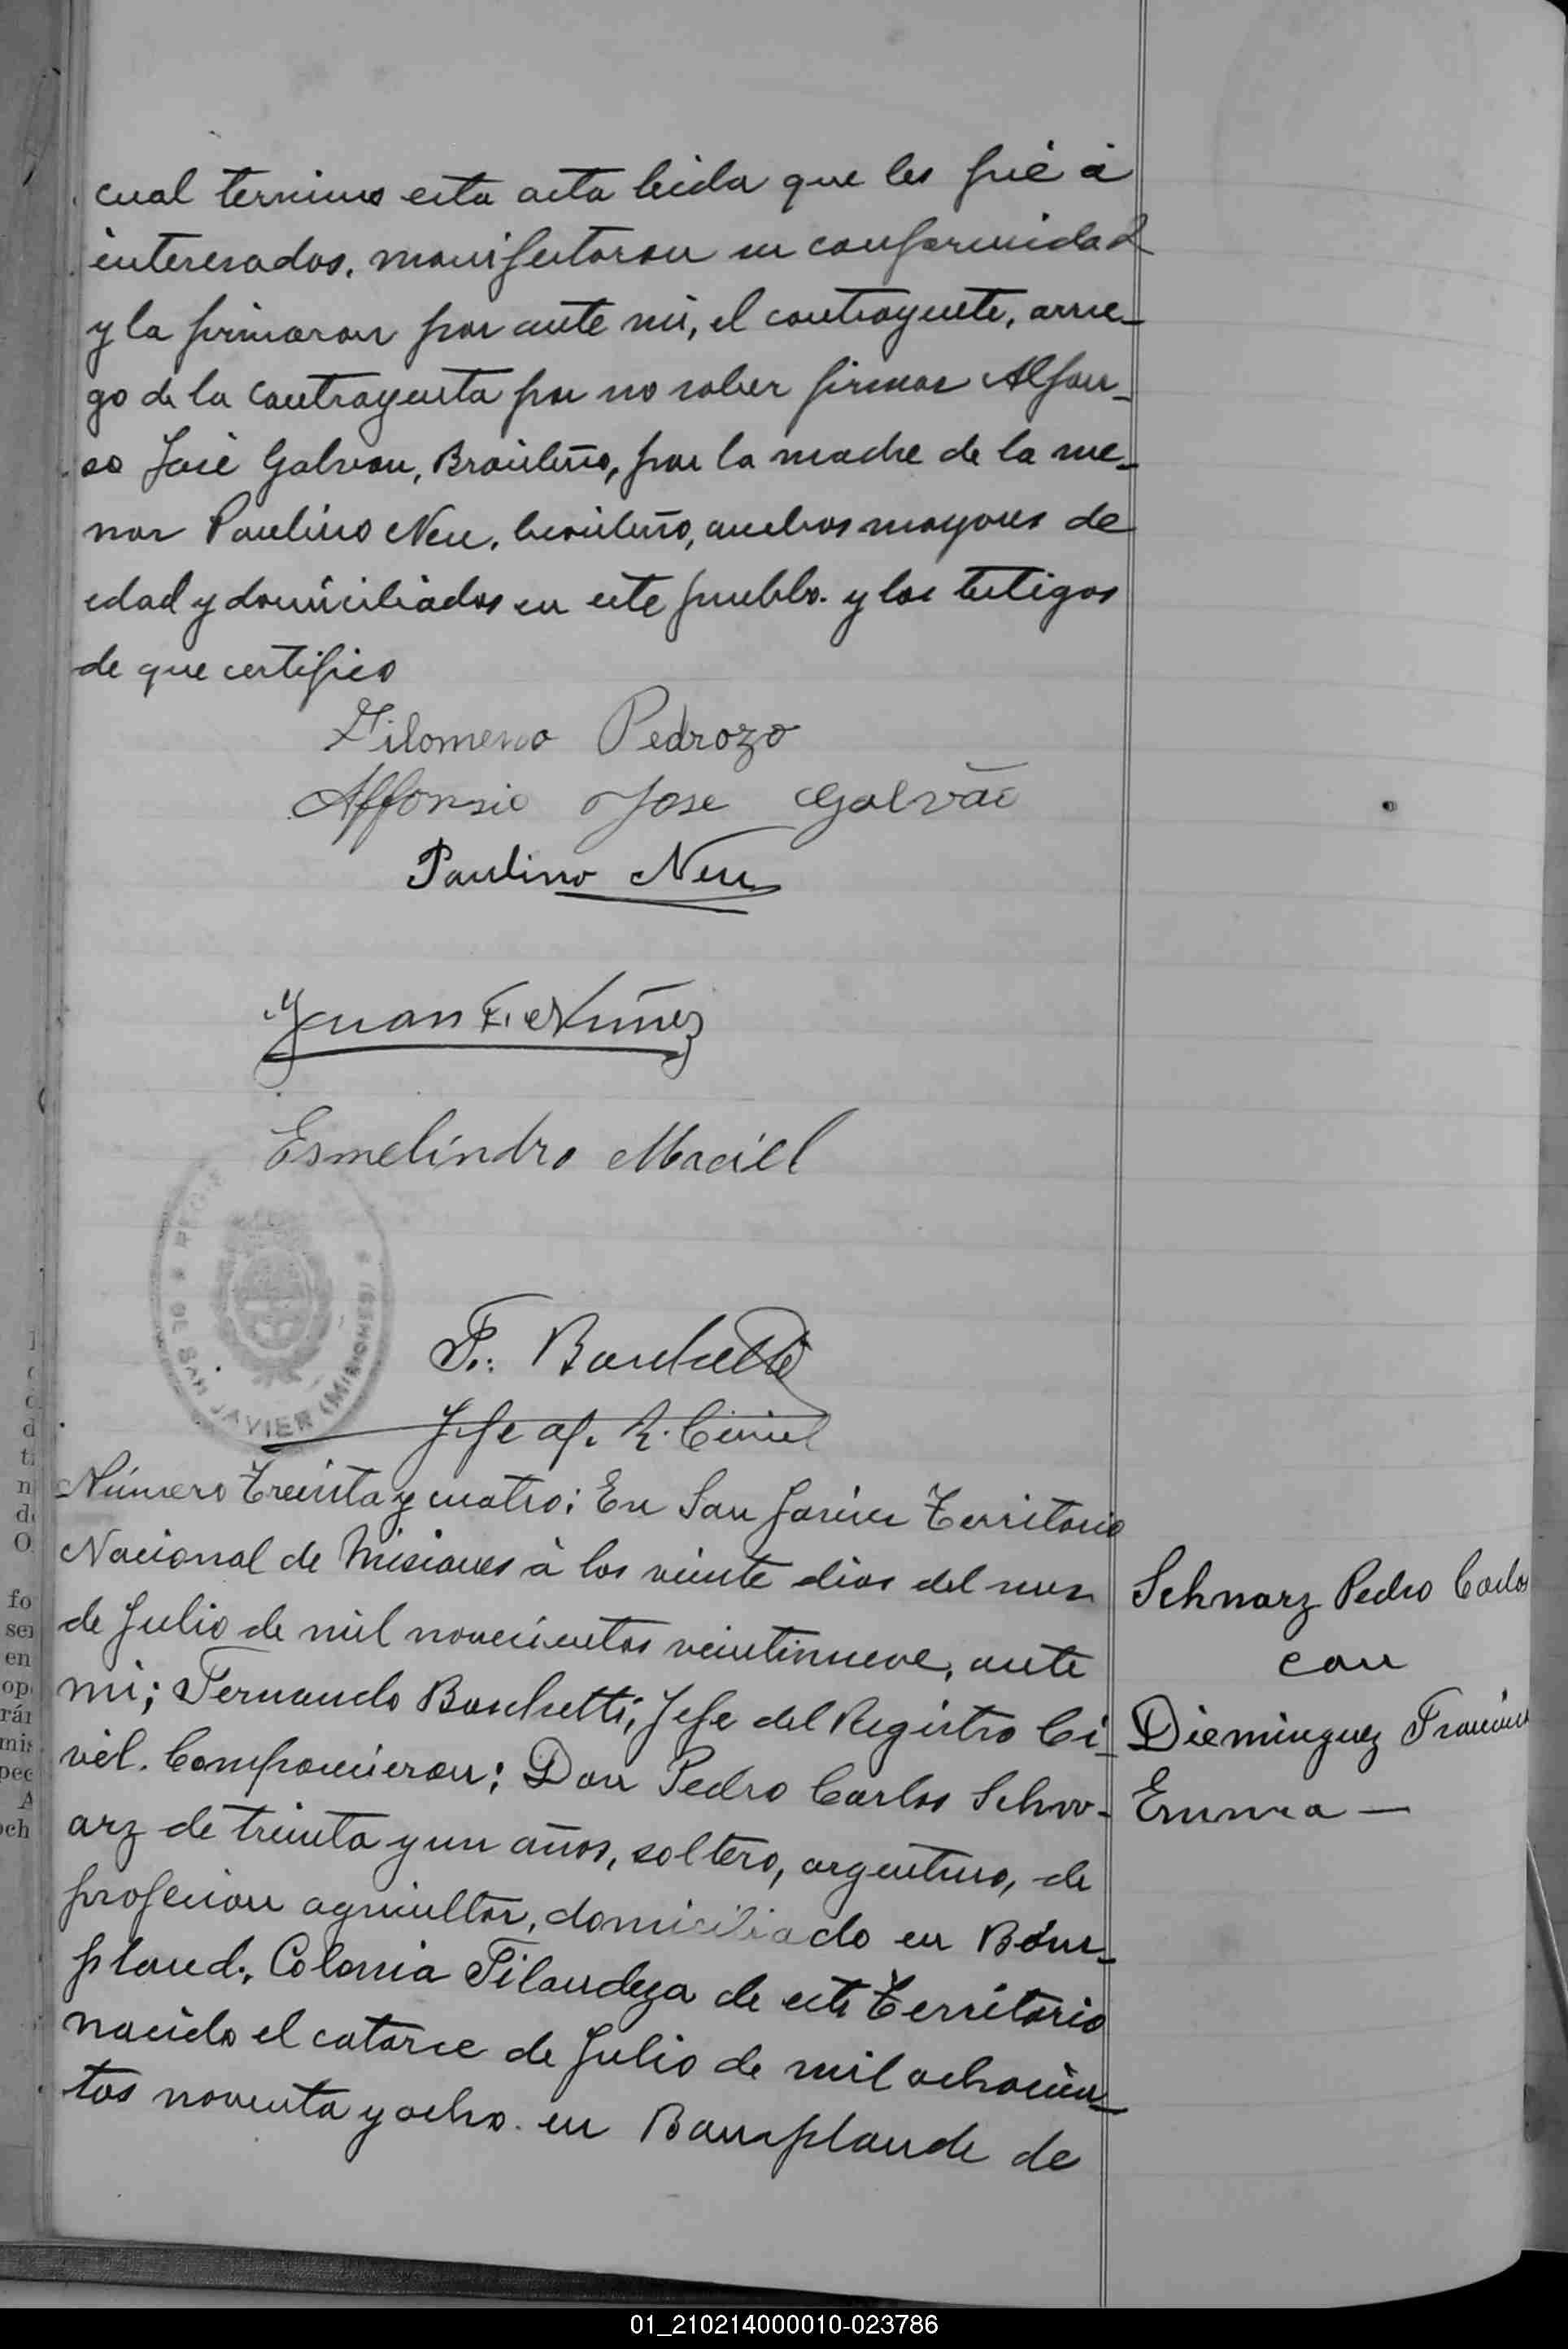 cual termino esta acta leida que les fué á
interesados, manifestaron su conformidad
y la firmaron por ante mi, el contrayente, arrue-
go de la contrayenta por no saber firmar Alfon-
so José Galvan, Brasileño, por la madre de la me-
nor Paulino Neu, brasileño, ambos mayores de
edad y domiciliados en este pueblo. y los testigos
de que certifico
Filomeno Pedrozo
Affonsio Jose Galvão
Paulino Neu
Juan F. Nuñez
Esmelindro Maciel
DE SAN JAVIER (MISIONES)
F. Boschetti
Jefe of. R. Civil
Número Treinta y cuatro: En San Javier Territorio
Nacional de Misiones á los veinte dias del mes
de Julio de mil novecientos veintinueve, ante
mi; Fernando Boschetti, Jefe del Registro Ci-
vil. Comparecieron: Don Pedro Carlos Schw-
arz de treinta y un años, soltero, argentino, de
profesion agricultor, domiciliado en Bom-
pland, Colonia Filandeza de este Territorio
nacido el catorce de Julio de mil ochocien-
tos noventa y ocho. en Bompland de
Schwarz Pedro Carlos
con
Dieminguez
Emma —
fo
ser
en
op
rár
mis
pec
A
och
01_210214000010-023786